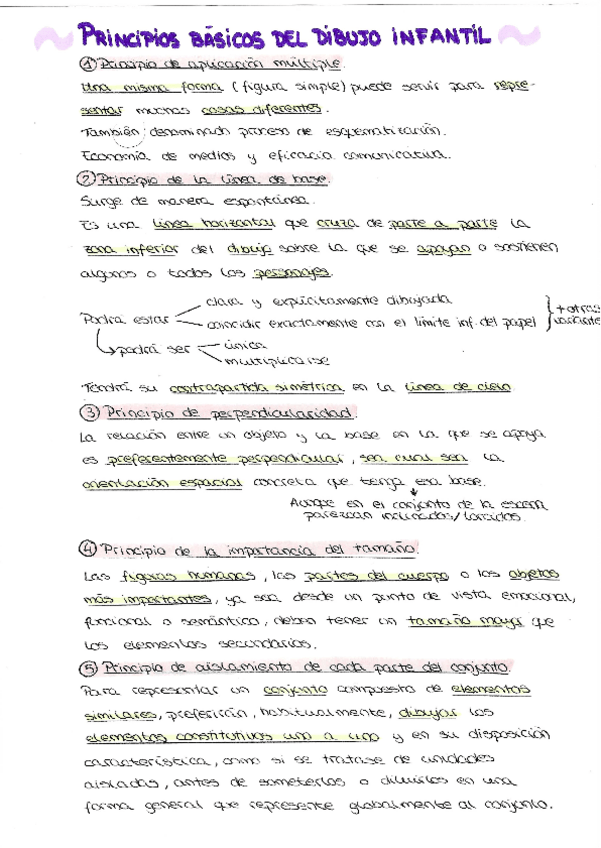 PRINCIPIOS BÁSICOS DEL DIBUJO INFANTIL
① Principio de aplicación múltiple.
Una misma forma (figura simple) puede servir para repre-
sentar muchas cosas diferentes.
También denominado proceso de esquematización.
Economía de medios y eficacia comunicativa.
② Principio de la línea de base.
Surge de manera espontánea.
Es una línea horizontal que cruza de parte a parte la
zona inferior del dibujo sobre la que se apoyan o sostienen
algunos o todos los personajes.
clara y explícitamente dibujada
Podrá estar
coincidir exactamente con el límite inf. del papel
+ otras
variante
podrá ser
única
multiplicarse
Tendrá su contrapartida simétrica en la línea de cielo.
③ Principio de perpendicularidad.
La relación entre un objeto y la base en la que se apoya
es preferentemente perpendicular, sea cual sea la
orientación espacial concreta que tenga esa base.
Aunque en el conjunto de la escena
parezcan inclinados/torcidos.
④ Principio de la importancia del tamaño.
Las figuras humanas, las partes del cuerpo o los objetos
más importantes, ya sea desde un punto de vista emocional,
funcional o semántico, deben tener un tamaño mayor que
los elementos secundarios.
⑤ Principio de aislamiento de cada parte del conjunto.
Para representar un conjunto compuesto de elementos
similares, preferirán, habitualmente, dibujar los
elementos constitutivos uno a uno y en su disposición
característica, como si se tratase de unidades
aisladas, antes de someterlos o diluirlos en una
forma general que represente globalmente al conjunto.